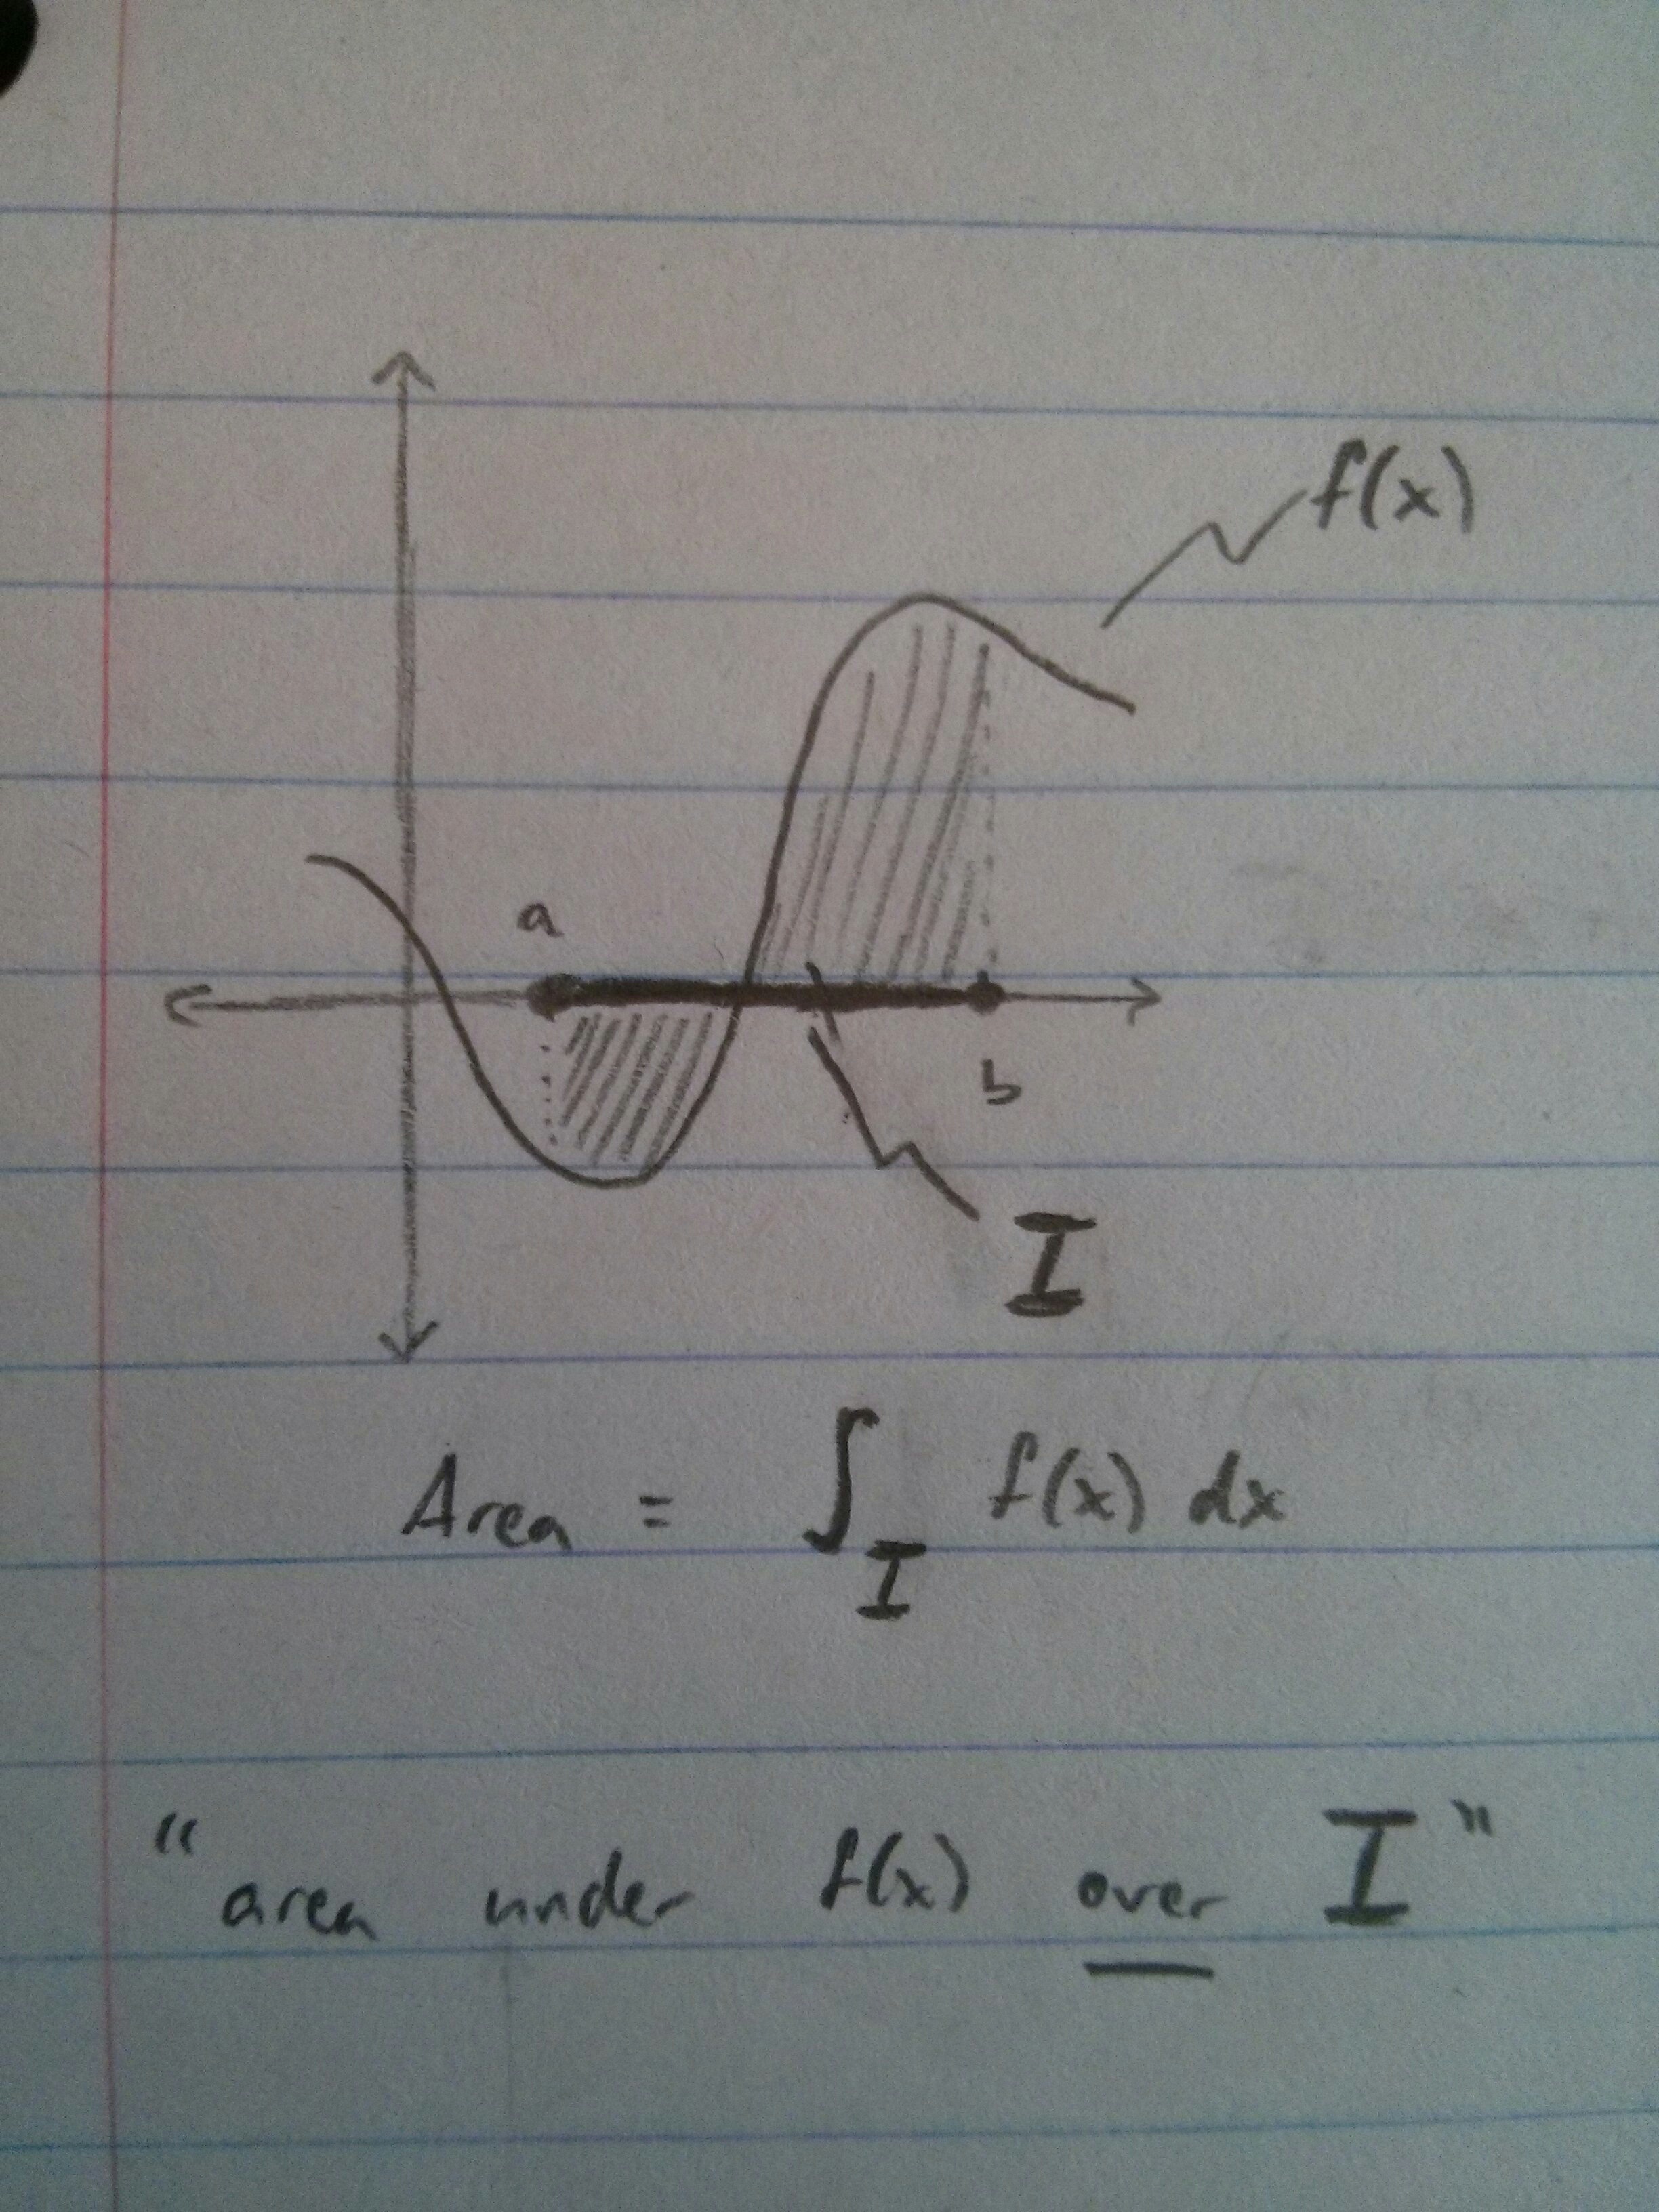 f(x)
a
b
I
Area = ∫_I f(x) dx
“area under f(x) over I”